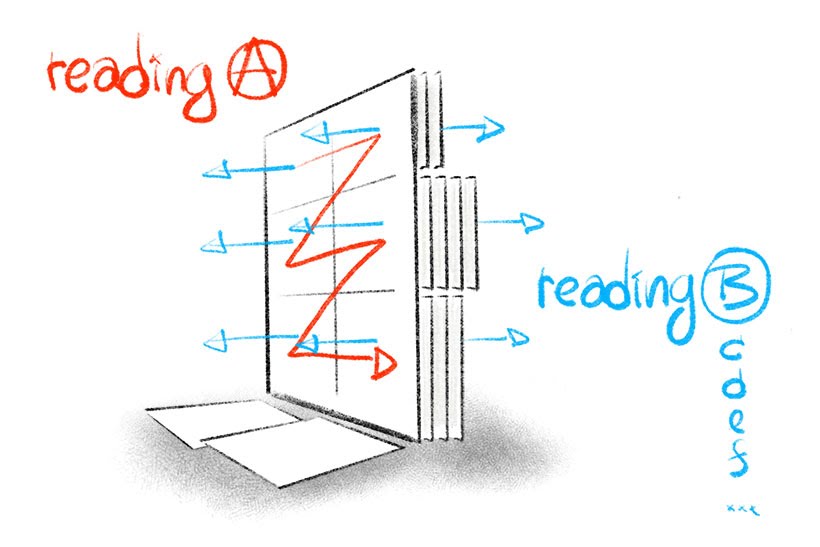 reading A
reading B
c
d
e
f
...